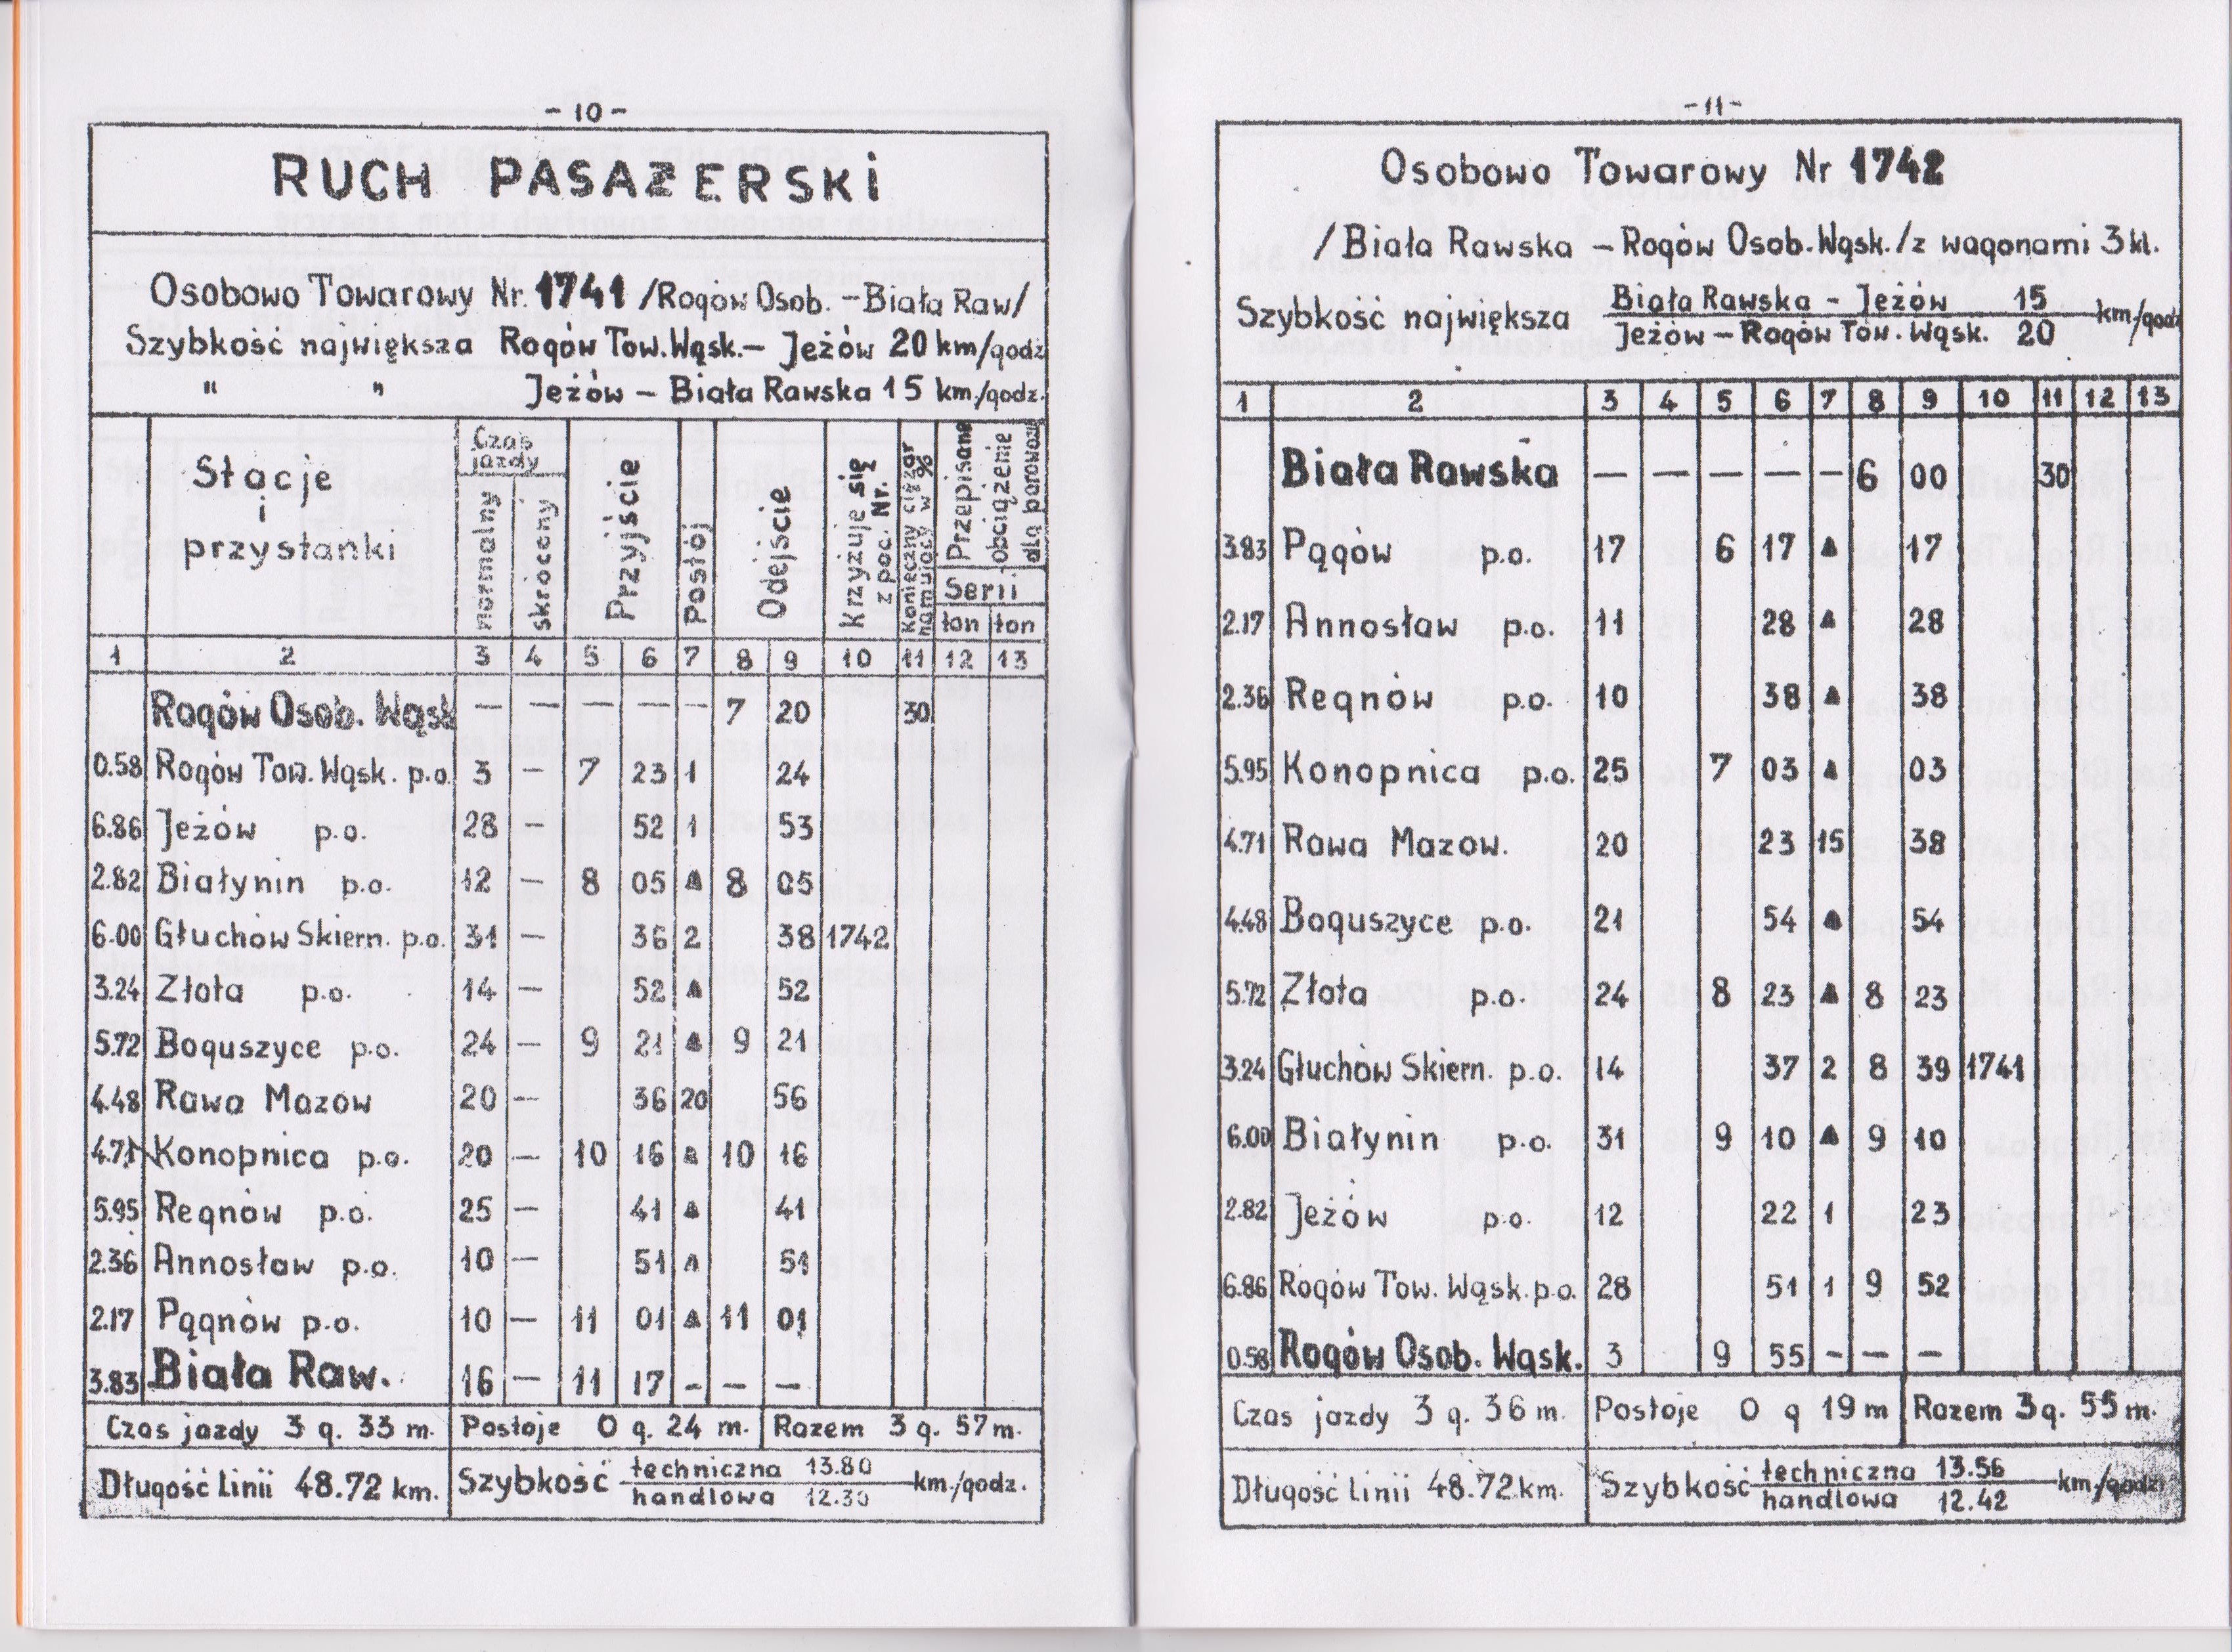 - 10 -
RUCH PASAŻERSKI
Osobowo Towarowy Nr. 1741 /Rogów Osob. - Biała Raw/
Szybkość największa Rogów Tow. Wąsk. - Jeżów 20 km/godz
" " Jeżów - Biała Rawska 15 km/godz.
Stacje i przystanki
Czas jazdy
normalny
skrócony
Przyjście
Postój
Odejście
Krzyżuje się z poc. Nr.
Konieczny ciężar hamujący w %
Przepisane obciążenie dla parowozu
Serii
ton ton
1 2 3 4 5 6 7 8 9 10 11 12 13
Rogów Osob. Wąsk — — — — — 7 20 30
0.58 Rogów Tow. Wąsk. p.o. 3 — 7 23 1 24
6.86 Jeżów p.o. 28 — 52 1 53
2.82 Białynin p.o. 12 — 8 05 ▲ 8 05
6.00 Głuchów Skiern. p.o. 31 — 36 2 38 1742
3.24 Złota p.o. 14 — 52 ▲ 52
5.72 Boguszyce p.o. 24 — 9 21 ▲ 9 21
4.48 Rawa Mazow 20 — 36 20 56
4.71 Konopnica p.o. 20 — 10 16 ▲ 10 16
5.95 Regnów p.o. 25 — 41 ▲ 41
2.36 Annosław p.o. 10 — 51 ▲ 51
2.17 Pągnów p.o. 10 — 11 01 ▲ 11 01
3.83 Biała Raw. 16 — 11 17 - — —
Czas jazdy 3 g. 33 m. Postoje 0 g. 24 m. Razem 3 g. 57 m.
Długość Linii 48.72 km. Szybkość techniczna 13.80 km./godz.
handlowa 12.30
- 11 -
Osobowo Towarowy Nr 1742
/Biała Rawska - Rogów Osob. Wąsk./z wagonami 3 kl.
Szybkość największa Biała Rawska - Jeżów 15 km/godz
Jeżów - Rogów Tow. Wąsk. 20
1 2 3 4 5 6 7 8 9 10 11 12 13
Biała Rawska — — — — — 6 00 30
3.83 Pągów p.o. 17 6 17 ▲ 17
2.17 Annosław p.o. 11 28 ▲ 28
2.36 Regnów p.o. 10 38 ▲ 38
5.95 Konopnica p.o. 25 7 03 ▲ 03
4.71 Rawa Mazow. 20 23 15 38
4.48 Boguszyce p.o. 21 54 ▲ 54
5.72 Złota p.o. 24 8 23 ▲ 8 23
3.24 Głuchów Skiern. p.o. 14 37 2 8 39 1741
6.00 Białynin p.o. 31 9 10 ▲ 9 10
2.82 Jeżów p.o. 12 22 1 23
6.86 Rogów Tow. Wąsk. p.o. 28 51 1 9 52
0.58 Rogów Osob. Wąsk. 3 9 55 - — —
Czas jazdy 3 g. 36 m. Postoje 0 g 19 m Razem 3 g. 55 m.
Długość Linii 48.72 km. Szybkość techniczna 13.56 km/godz
handlowa 12.42